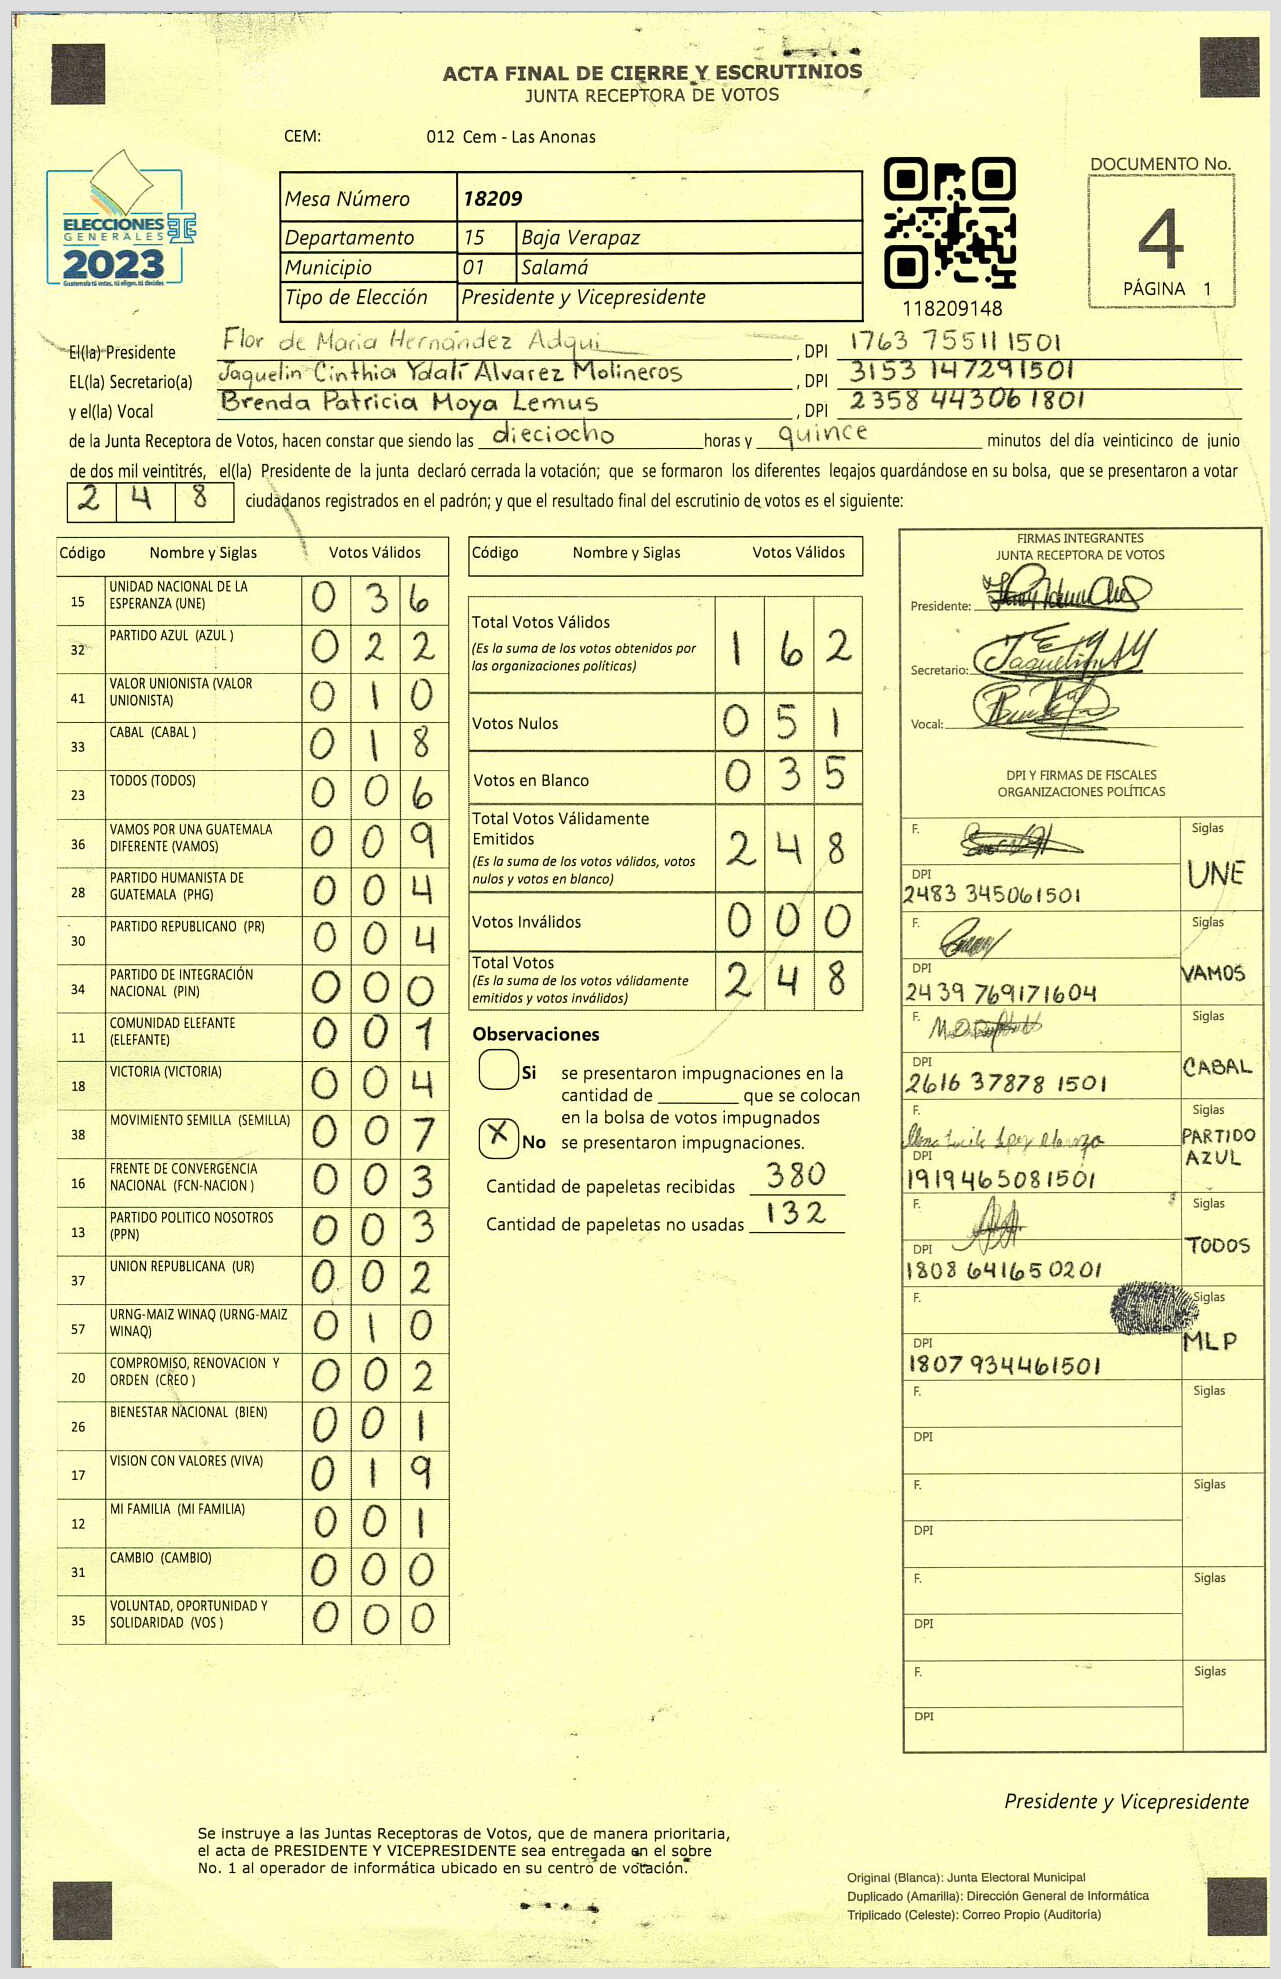 ACTA FINAL DE CIERRE Y ESCRUTINIOS
JUNTA RECEPTORA DE VOTOS
CEM: 012 Cem - Las Anonas
ELECCIONES
GENERALES
2023
Guatemala tú votas, tú eliges, tú decides
Mesa Número 18209
Departamento 15 Baja Verapaz
Municipio 01 Salamá
Tipo de Elección Presidente y Vicepresidente
118209148
DOCUMENTO No.
4
PÁGINA 1
El(la) Presidente Flor de Maria Hernández Adqui, DPI 1763 75511 1501
EL(la) Secretario(a) Jaquelin Cinthia Ydalí Alvarez Molineros, DPI 3153 147291501
y el(la) Vocal Brenda Patricia Moya Lemus, DPI 2358 443061801
de la Junta Receptora de Votos, hacen constar que siendo las dieciocho horas y quince minutos del día veinticinco de junio
de dos mil veintitrés, el(la) Presidente de la junta declaró cerrada la votación; que se formaron los diferentes legajos quardándose en su bolsa, que se presentaron a votar
248 ciudadanos registrados en el padrón; y que el resultado final del escrutinio de votos es el siguiente:
Código Nombre y Siglas Votos Válidos
15 UNIDAD NACIONAL DE LA ESPERANZA (UNE) 036
32 PARTIDO AZUL (AZUL ) 022
41 VALOR UNIONISTA (VALOR UNIONISTA) 010
33 CABAL (CABAL ) 018
23 TODOS (TODOS) 006
36 VAMOS POR UNA GUATEMALA DIFERENTE (VAMOS) 009
28 PARTIDO HUMANISTA DE GUATEMALA (PHG) 004
30 PARTIDO REPUBLICANO (PR) 004
34 PARTIDO DE INTEGRACIÓN NACIONAL (PIN) 000
11 COMUNIDAD ELEFANTE (ELEFANTE) 001
18 VICTORIA (VICTORIA) 004
38 MOVIMIENTO SEMILLA (SEMILLA) 007
16 FRENTE DE CONVERGENCIA NACIONAL (FCN-NACION ) 003
13 PARTIDO POLITICO NOSOTROS (PPN) 003
37 UNION REPUBLICANA (UR) 002
57 URNG-MAIZ WINAQ (URNG-MAIZ WINAQ) 010
20 COMPROMISO, RENOVACION Y ORDEN (CREO ) 002
26 BIENESTAR NACIONAL (BIEN) 001
17 VISION CON VALORES (VIVA) 019
12 MI FAMILIA (MI FAMILIA) 001
31 CAMBIO (CAMBIO) 000
35 VOLUNTAD, OPORTUNIDAD Y SOLIDARIDAD (VOS ) 000
Código Nombre y Siglas Votos Válidos
Total Votos Válidos 162
(Es la suma de los votos obtenidos por
las organizaciones políticas)
Votos Nulos 051
Votos en Blanco 035
Total Votos Válidamente
Emitidos 248
(Es la suma de los votos válidos, votos
nulos y votos en blanco)
Votos Inválidos 000
Total Votos 248
(Es la suma de los votos válidamente
emitidos y votos inválidos)
Observaciones
Si se presentaron impugnaciones en la
cantidad de ________ que se colocan
en la bolsa de votos impugnados
X No se presentaron impugnaciones.
Cantidad de papeletas recibidas 380
Cantidad de papeletas no usadas 132
FIRMAS INTEGRANTES
JUNTA RECEPTORA DE VOTOS
Presidente:
Secretario:
Vocal:
DPI Y FIRMAS DE FISCALES
ORGANIZACIONES POLÍTICAS
F. Siglas
DPI UNE
2483 345061501
F. Siglas
DPI VAMOS
2439 769171604
F. Siglas
DPI CABAL
2616 37878 1501
F. Siglas
DPI PARTIDO AZUL
1919465081501
F. Siglas
DPI TODOS
1808 641650201
F. Siglas
DPI MLP
1807 934461501
F. Siglas
DPI
F. Siglas
DPI
F. Siglas
DPI
F. Siglas
DPI
Presidente y Vicepresidente
Se instruye a las Juntas Receptoras de Votos, que de manera prioritaria,
el acta de PRESIDENTE Y VICEPRESIDENTE sea entregada en el sobre
No. 1 al operador de informática ubicado en su centro de votación.
Original (Blanca): Junta Electoral Municipal
Duplicado (Amarilla): Dirección General de Informática
Triplicado (Celeste): Correo Propio (Auditoría)